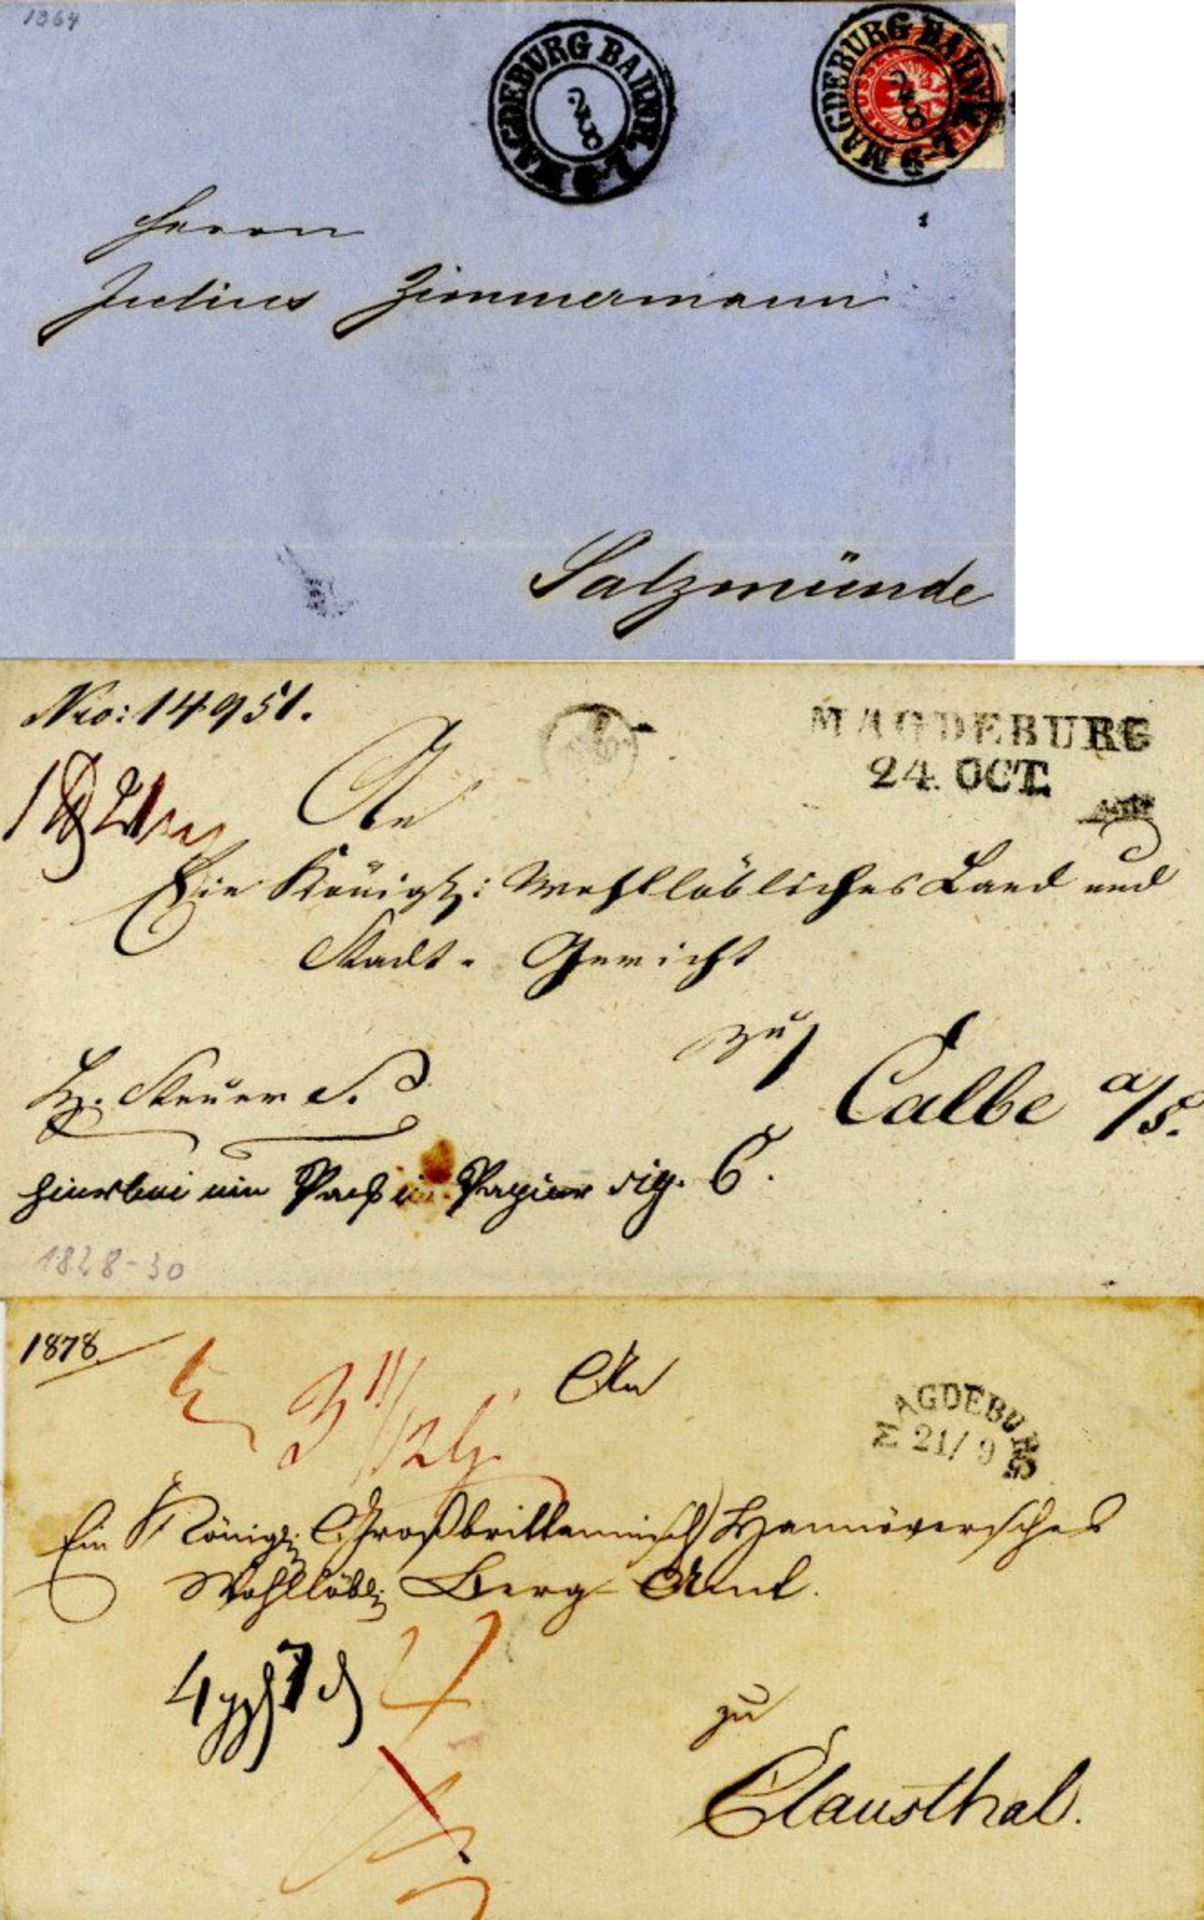 1864
MAGDEBURG BAHNH. 7-9
2/8
MAGDEBURG BAHNH. 7-9
2/8
Herrn
Julius Zimmermann
Salzmünde
Nro: 14951.
MAGDEBURG
24. OCT.
An
Ein Königl: Wohllöbliches Land und
Stadt- Gericht
zu
Calbe a/S.
H. Steuer S.
hierbei ein Pack in Papier sig. C.
1828-30
1878.
An
MAGDEBURG
21/9
Ein Königl. Großbrittannisch Hannöversches
Wohllöbl. Berg Amt.
zu
Clausthal.